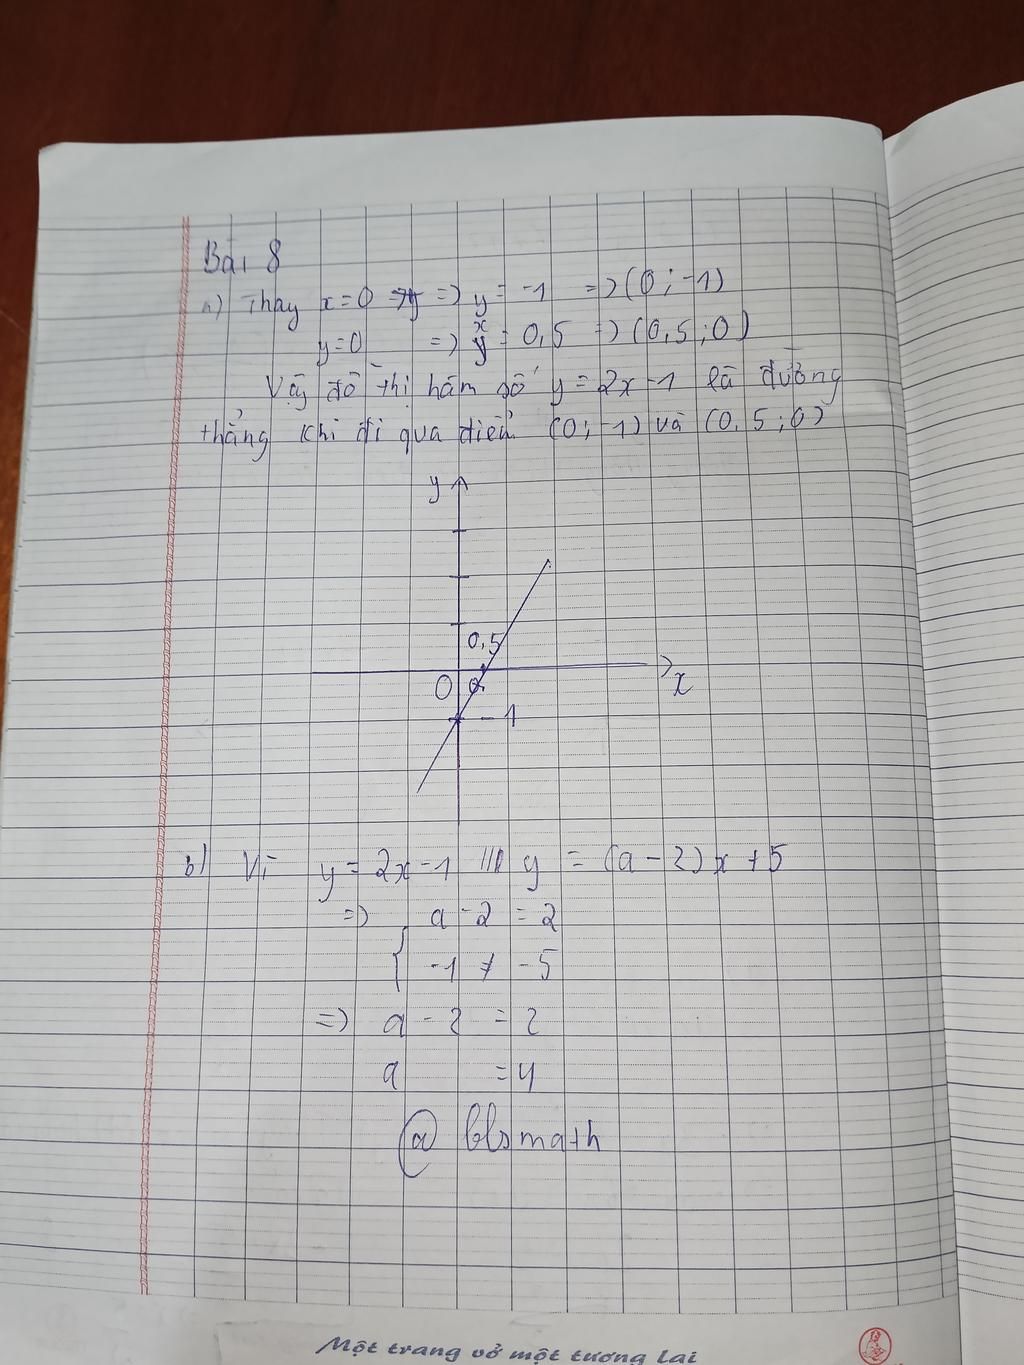 Bài 8
a) Thay x=0 => y => y = -1 => (0; -1)
y=0 => x = 0,5 => (0,5;0)
Vậy đồ thị hàm số y = 2x-1 là đường
thẳng khi đi qua điểm (0; -1) và (0,5;0)
y
0,5
0
x
-1
b) Vì y = 2x-1 // y = (a-2)x+5
=> a-2 = 2
{ -1 ≠ -5
=> a-2 = 2
a = 4
@ blsmath
Một trang vở một tương lai